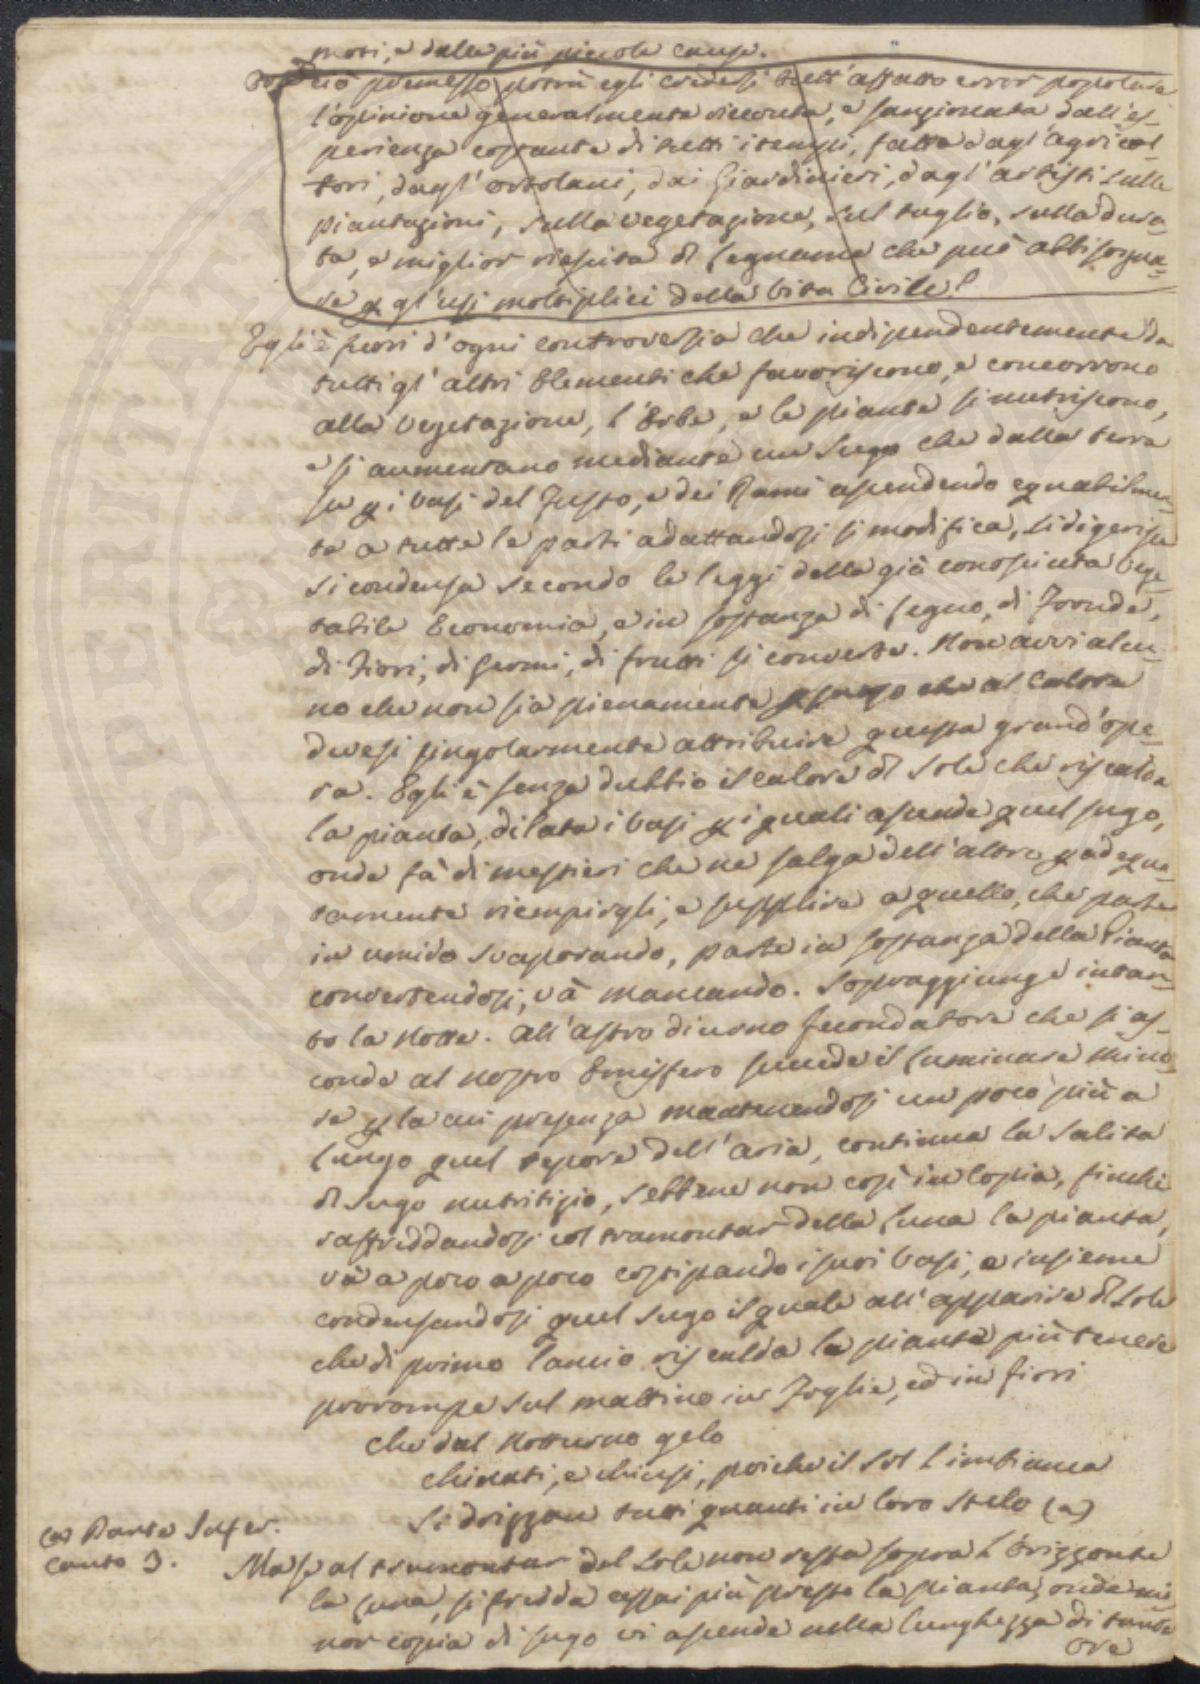 mori, e dalle più piccole cause.
ciò premesso potrà egli credersi tutt'affatto error popolare
l'opinione generalmente ricevuta, e sanzionata dall'es-
perienza costante di tutti i tempi, fatta dagl'agricol-
tori, dagl'ortolani, dai Giardinieri, dagl'artisti sulle
piantagioni, sulla vegetazione, sul taglio, sulla dura-
ta, e miglior riescita di legname che può abbisogna-
re p gl'usi moltiplici della Vita Civile?
Egli è fuori d'ogni controversia che indipendentemente da
tutti gl'altri Elementi che favoriscono, e concorrono
alla Vegetazione, l'Erbe, e le piante si nutriscono,
e si aumentano mediante un sugo che dalla terra
su p i vasi del Fusto, e dei Rami ascendendo equabilmen-
te a tutte le parti adattandosi si modifica, si digerisce
si condensa secondo le leggi della già conosciuta Vege-
tabile Economia, e in sostanza di legno, di Fronde,
di Fiori, di Germi, di frutti si converte. Non avvi alcu-
no che non sia pienamente che al Calore
devesi singolarmente attribuire questa grand'ope-
ra. Egli è senza dubbio il calore di Sole che riscalda
la pianta, dilata i vasi p i quali ascende quel sugo,
onde fà di mestieri che ne salga dell'altro p adequa-
tamente riempirgli, e supplire a quello, che parte
in umido svaporando, parte in sostanza della Pianta
convertendosi, và mancando. Sopraggiunge intan-
to la Notte. All'astro diurno fecondatore che si as-
conde al nostro Emisfero succede il luminare mino-
re p la cui presenza mantenendosi un poco più a
lungo quel tepore dell'aria, continua la salita
di sugo nutritizio, sebbene non così in copia, finchè
raffreddandosi col tramontar della Luna la pianta,
và a poco a poco costipando i suoi Vasi, e insieme
condensandosi quel sugo il quale all'apparire di Sole
che di primo lancio riscalda la pianta più tenera
prorompe sul mattino in Foglie, ed in fiori
che dal notturno gelo
chinati, e chiusi, poichè il Sol l'imbianca
Si drizzan tutti quanti in loro stelo (a)
(a) Dante Infer.
Canto 2.
Ma se al tramontar del Sole non resta sopra l'Orizzonte
la Luna, si fredda assai più presto la pianta, onde mi-
nor copia di sugo vi ascende nella lunghezza di tante
ore